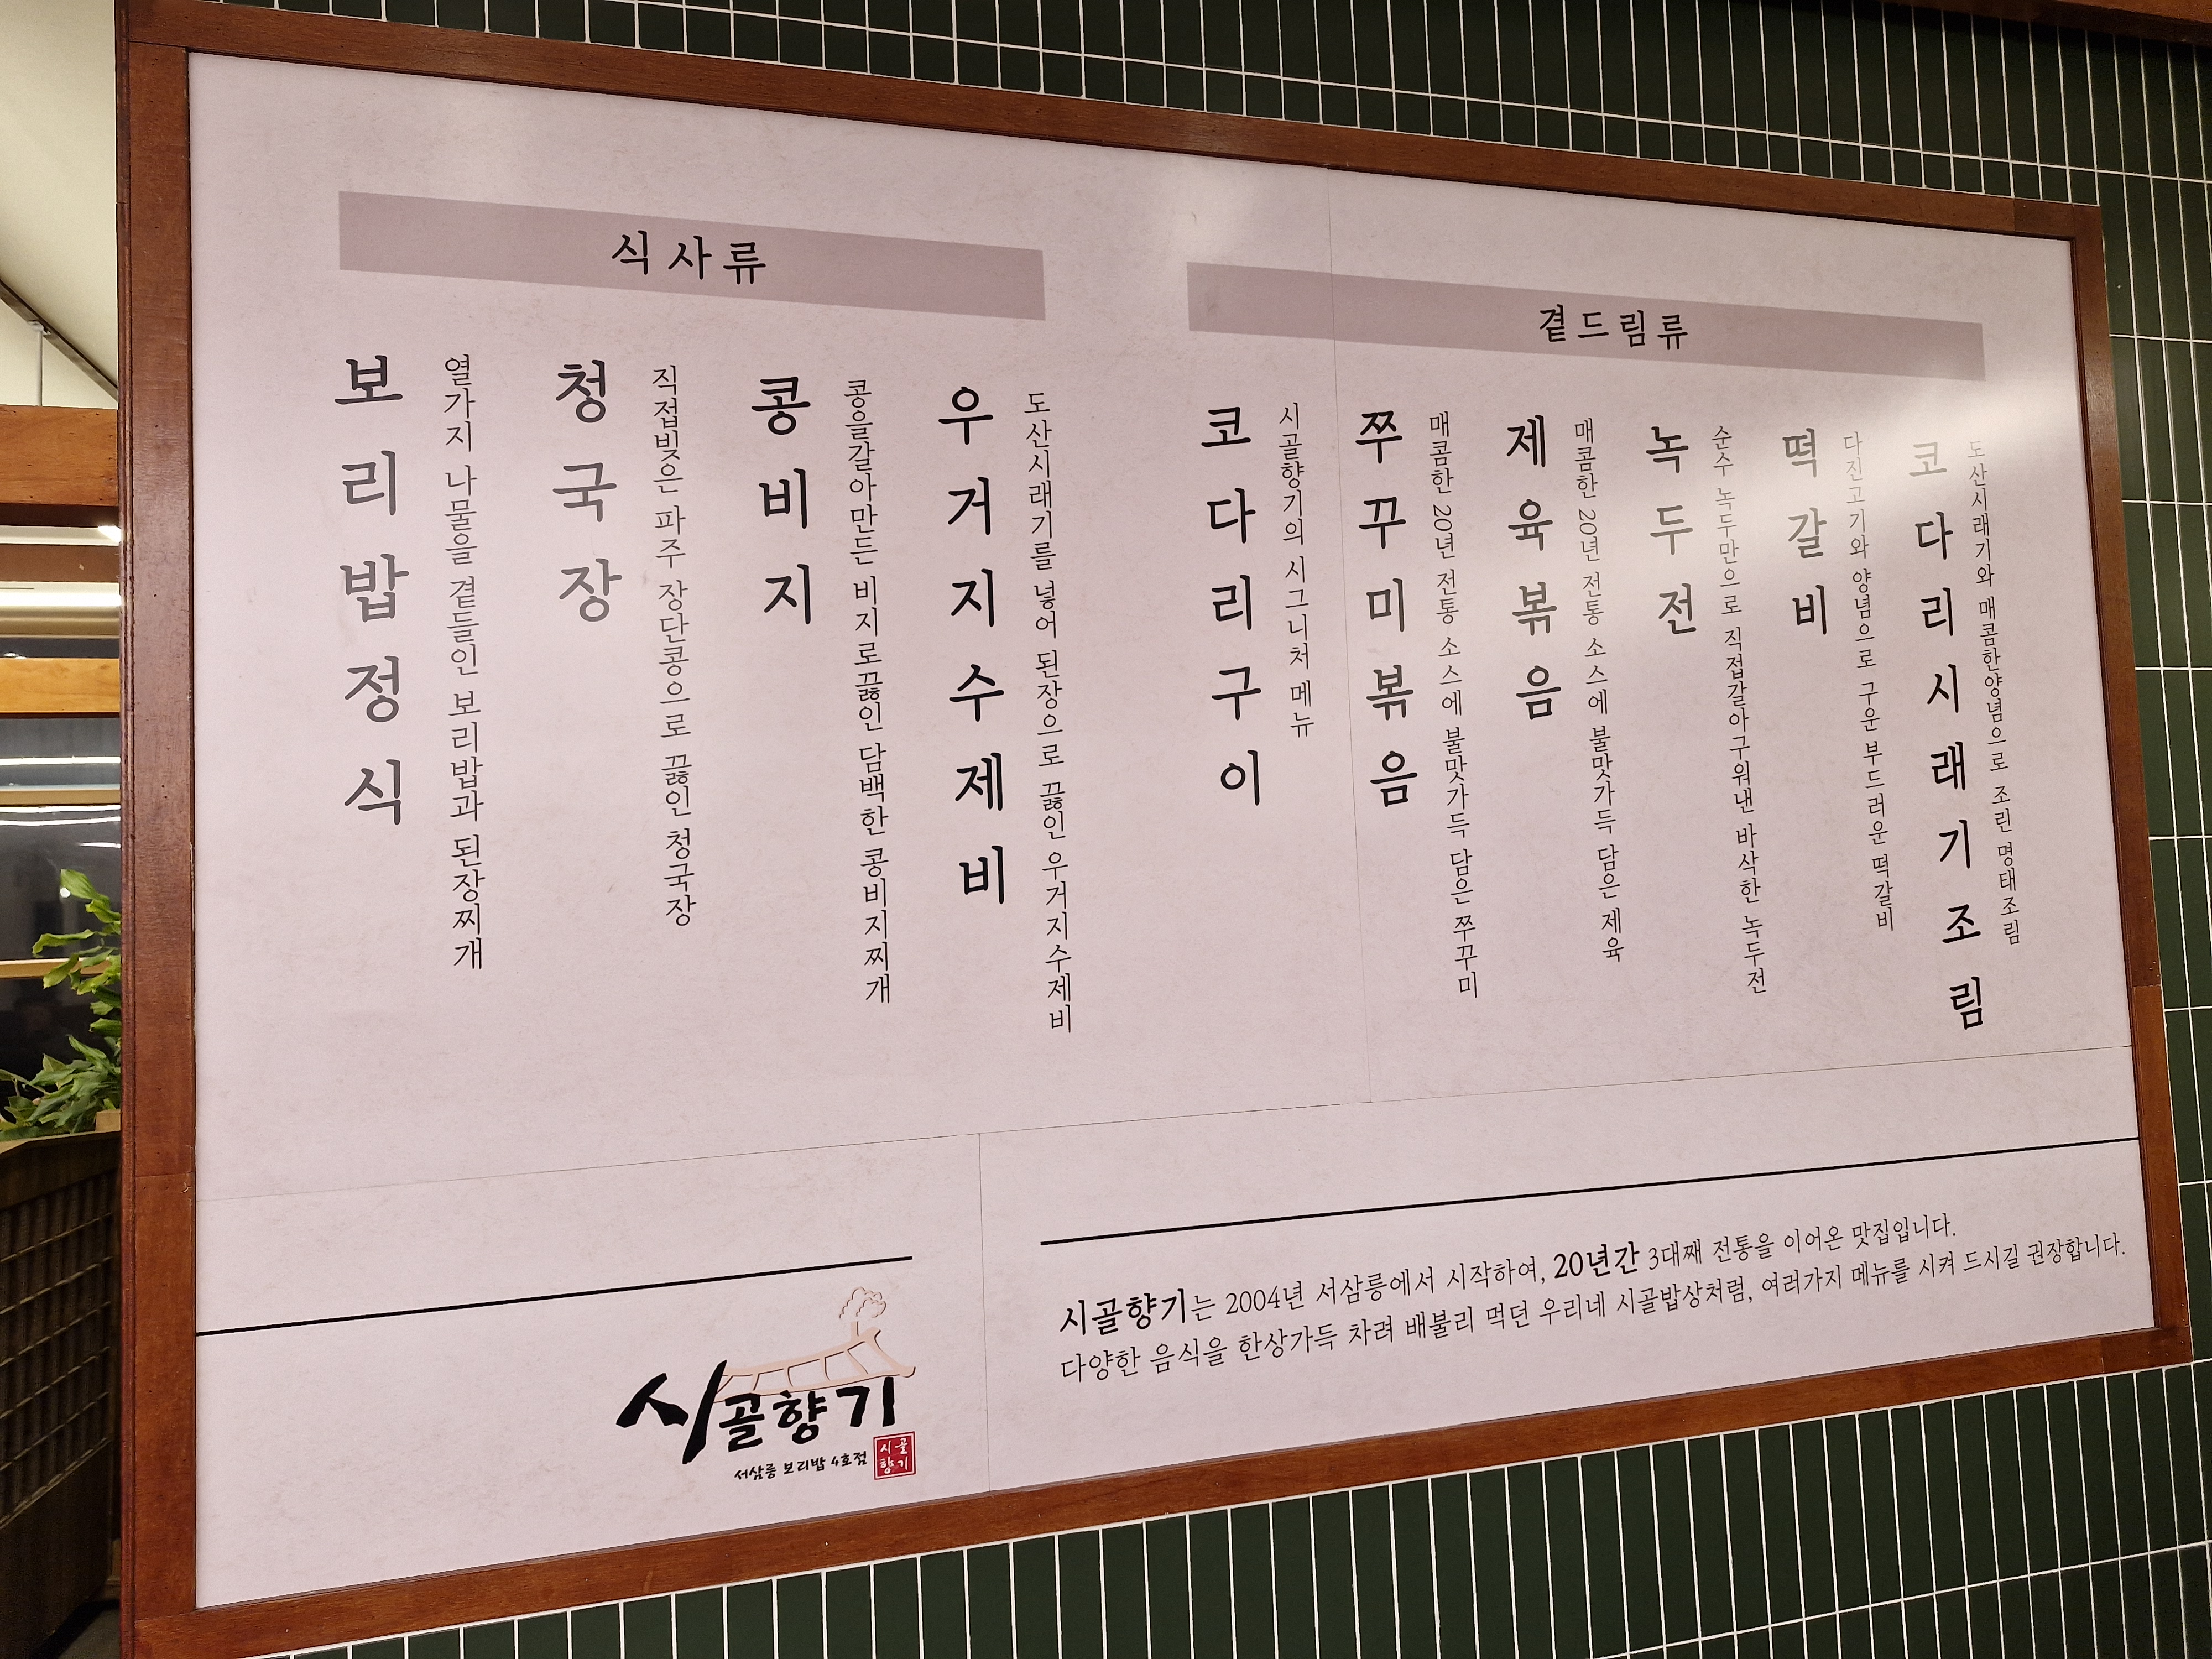 식사류
보리밥정식
열가지 나물을 곁들인 보리밥과 된장찌개
청국장
직접빚은 파주 장단콩으로 끓인 청국장
콩비지
콩을갈아만든 비지로끓인 담백한 콩비지찌개
우거지수제비
도산시래기를 넣어 된장으로 끓인 우거지수제비
곁드림류
코다리구이
시골향기의 시그니처 메뉴
쭈꾸미볶음
매콤한 20년 전통 소스에 불맛가득 담은 쭈꾸미
제육볶음
매콤한 20년 전통 소스에 불맛가득 담은 제육
녹두전
순수 녹두만으로 직접갈아구워낸 바삭한 녹두전
떡갈비
다진고기와 양념으로 구운 부드러운 떡갈비
코다리시래기조림
도산시래기와 매콤한양념으로 조린 명태조림
시골향기
서삼릉 보리밥 4호점
시골
향기
시골향기는 2004년 서삼릉에서 시작하여, 20년간 3대째 전통을 이어온 맛집입니다.
다양한 음식을 한상가득 차려 배불리 먹던 우리네 시골밥상처럼, 여러가지 메뉴를 시켜 드시길 권장합니다.